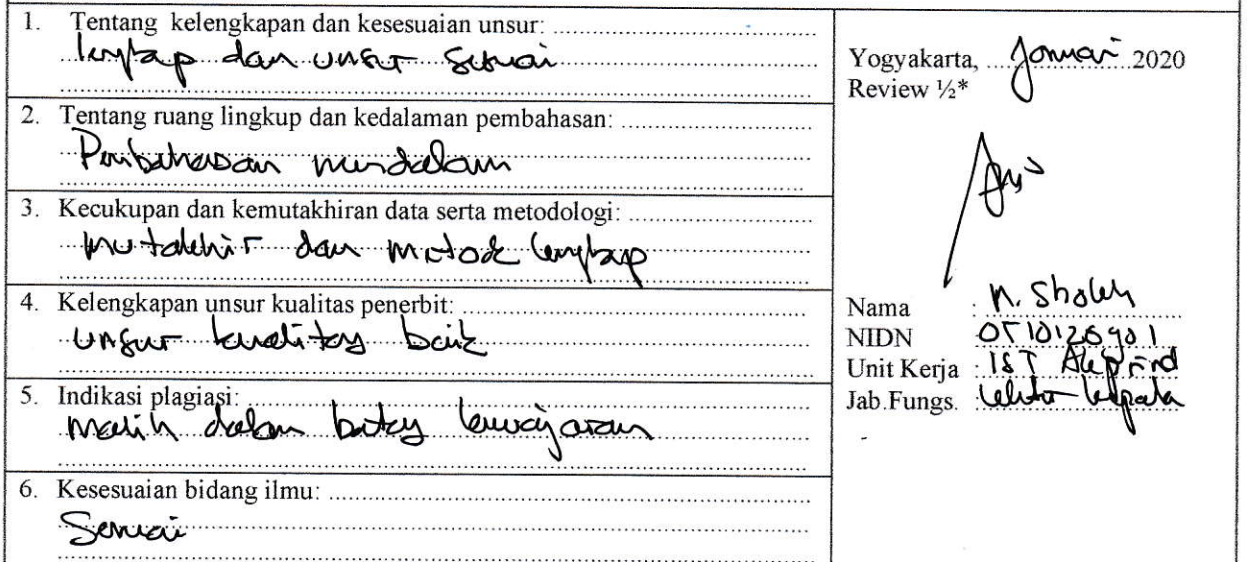 1. Tentang kelengkapan dan kesesuaian unsur:
lengkap dan unsur sesuai
2. Tentang ruang lingkup dan kedalaman pembahasan:
Pembahasan mendalam
3. Kecukupan dan kemutakhiran data serta metodologi:
mutakhir dan metode lengkap
4. Kelengkapan unsur kualitas penerbit:
unsur kualitas baik
5. Indikasi plagiasi:
masih dalam batas kewajaran
6. Kesesuaian bidang ilmu:
Sesuai
Yogyakarta, Januari 2020
Review ½*
Nama : M. Sholeh
NIDN
Unit Kerja : IST Akprind
Jab.Fungs. Lektor kepala